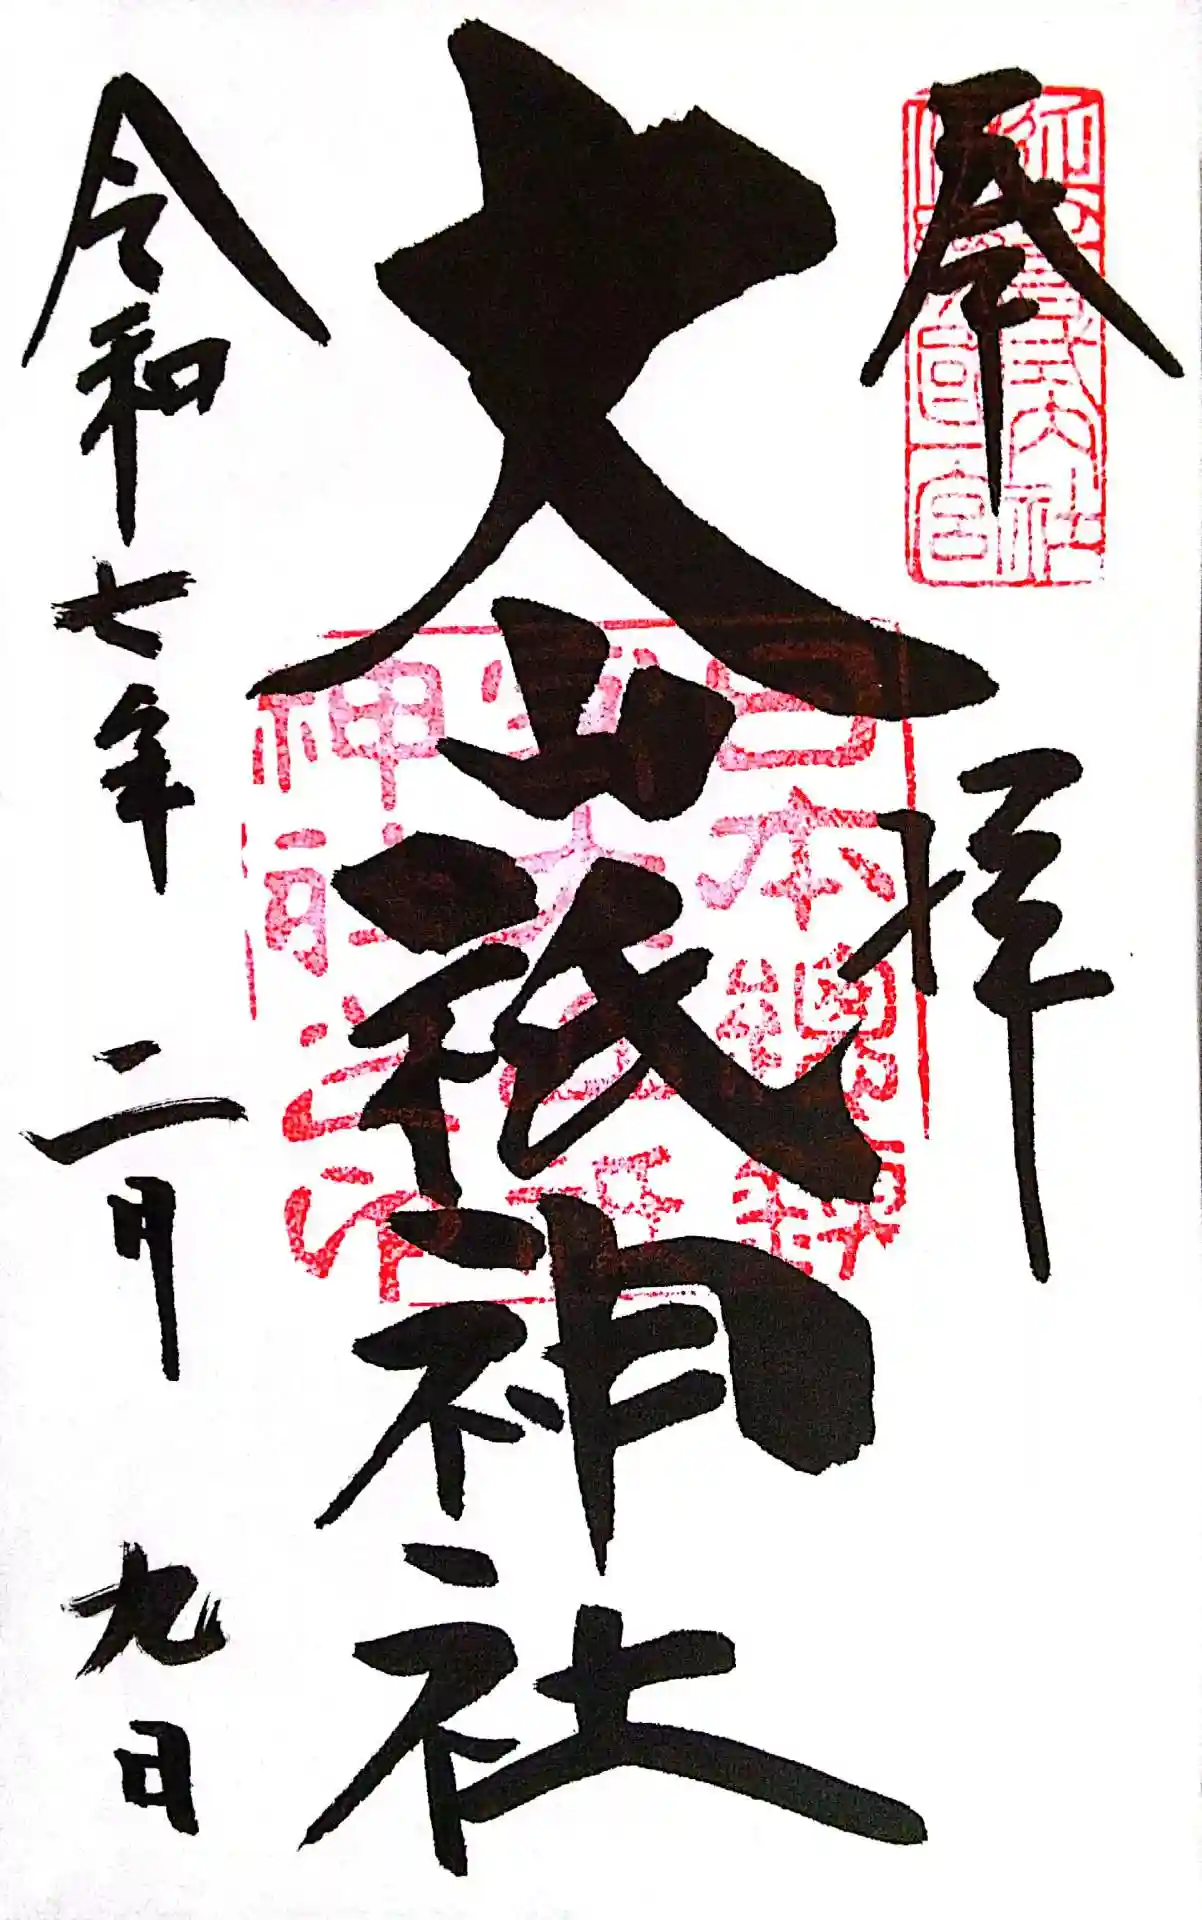 奉拝
式内社
国一宮
大山祇神社
日本總鎮
守大山
神社之印
令和七年二月九日